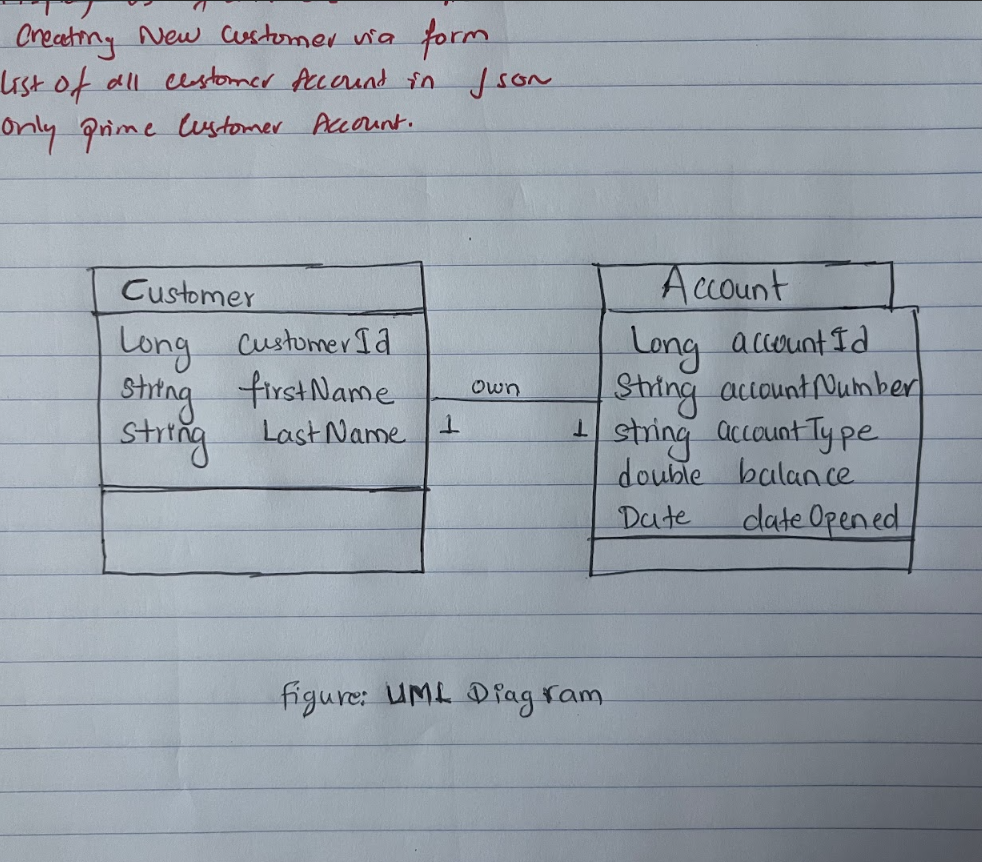 Creating New Customer via form
list of all customer Account in Json
only prime Customer Account.
Customer
Long customerId
String firstName
String LastName
own
1 1
Account
Long accountId
String accountNumber
string accountType
double balance
Date dateOpened
figure: UML Diagram